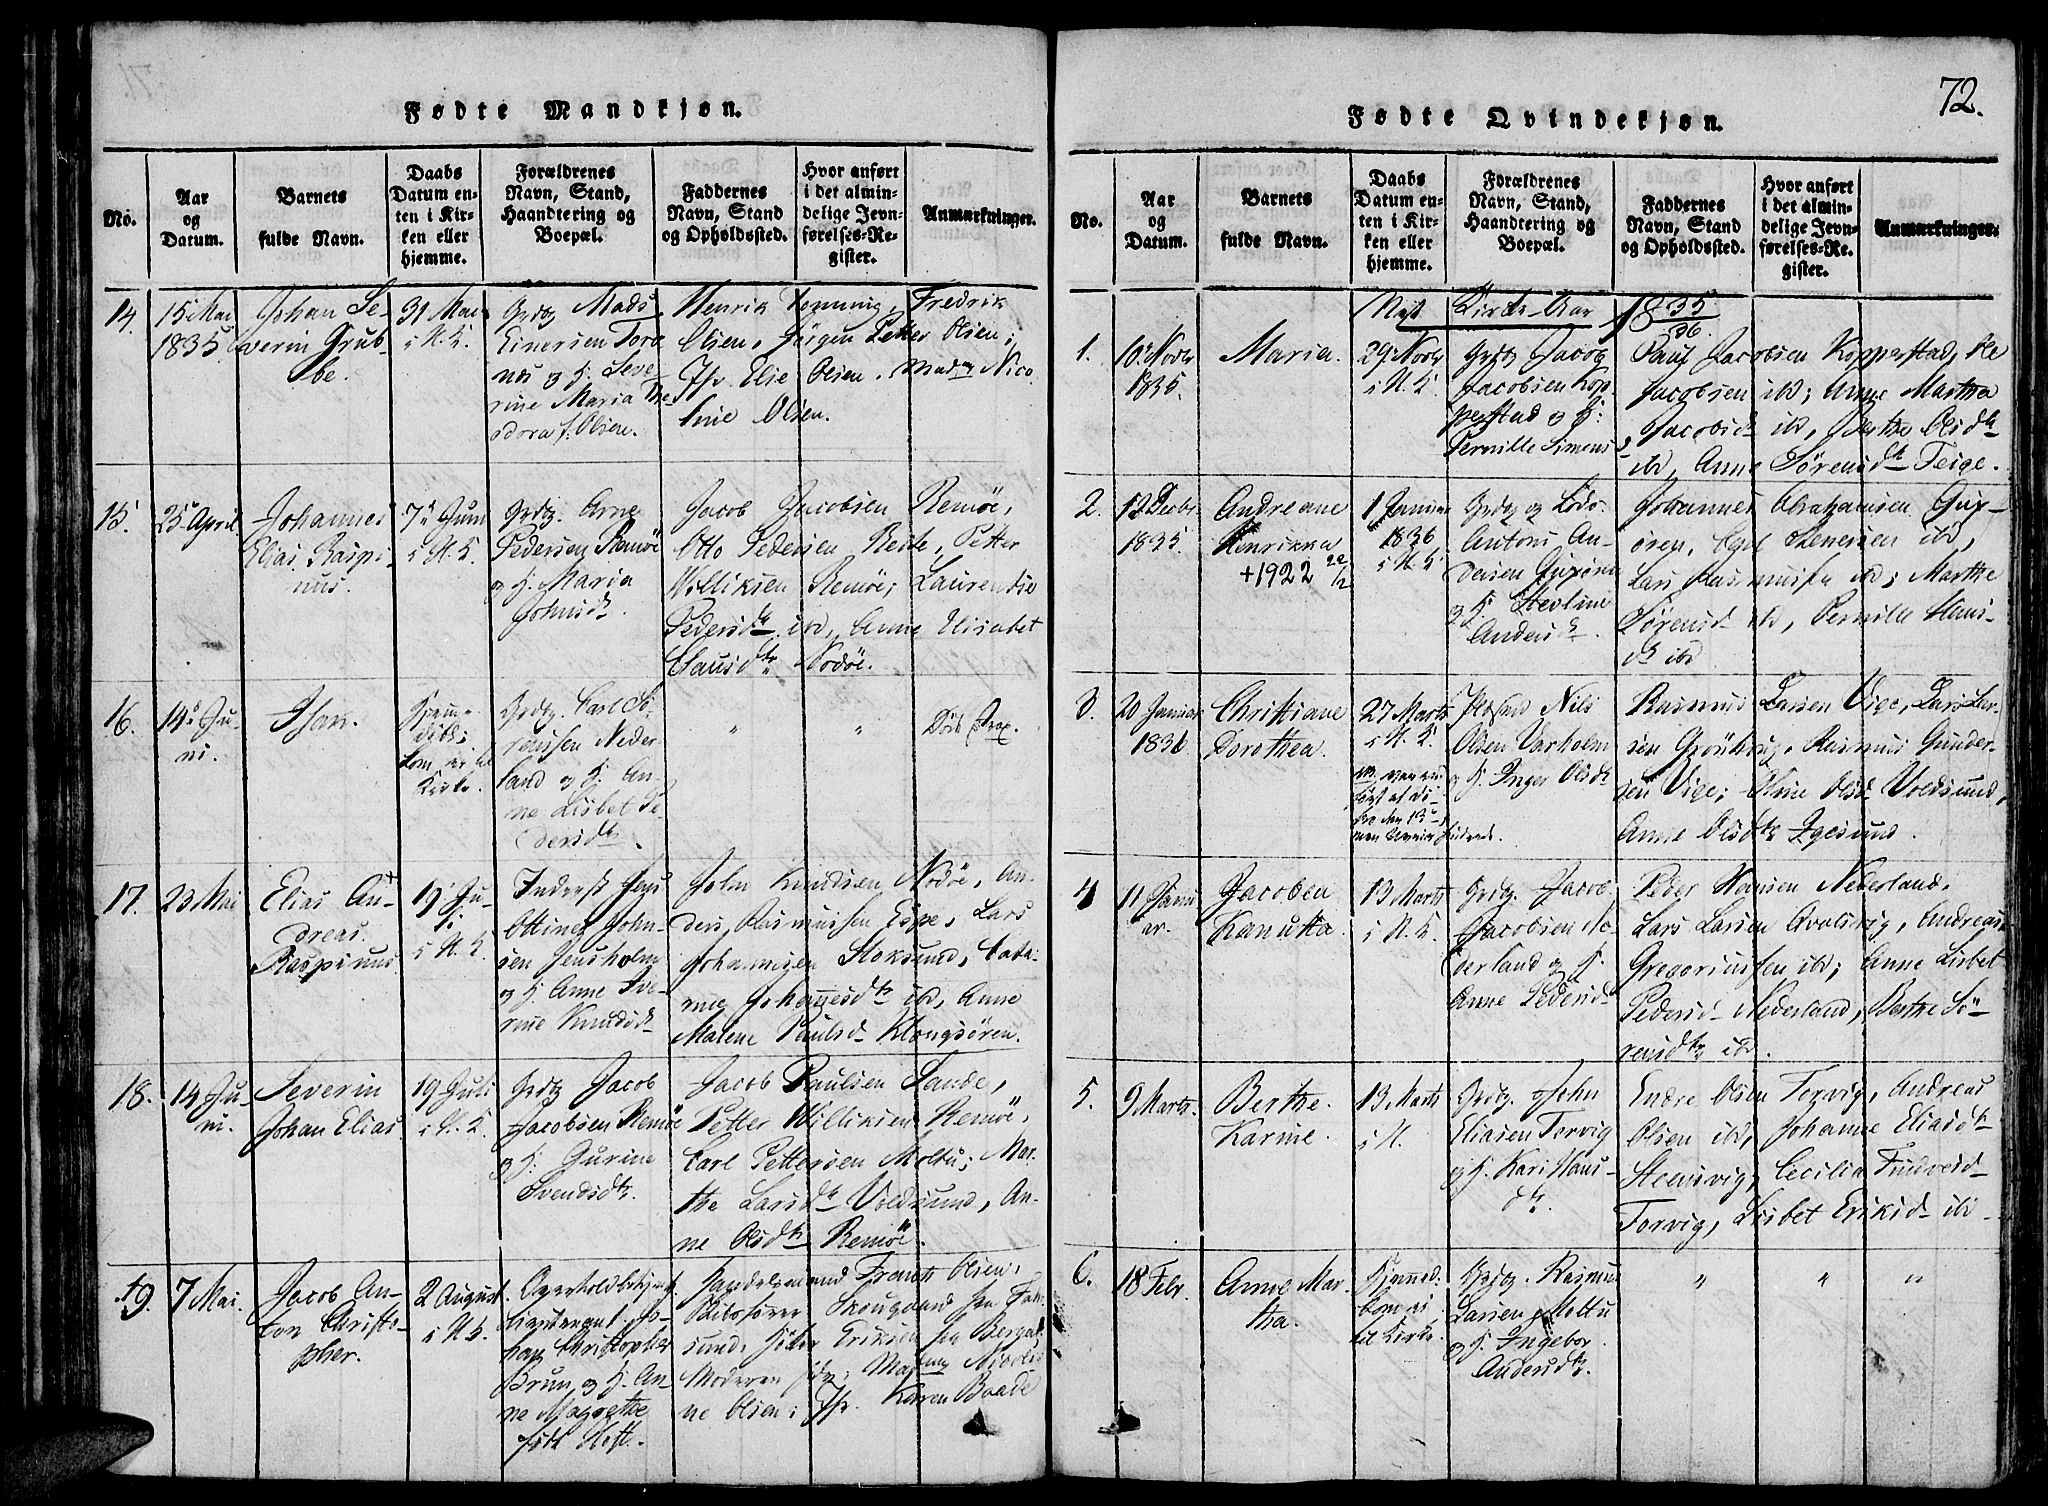 Fødte Mandkjøn.
No.
Aar og Datum.
Barnets fulde Navn.
Daabs Datum enten i Kirken eller hjemme.
Forældrenes Navn, Stand, Haandtering og Boepæl.
Faddernes Navn, Stand og Opholdssted.
Hvor anført i det almindelige Jevnførelses-Register.
Anmærkninger.
14.
15 Mai
1835.
Johan Se-
verin Grub-
be.
31 Mai
i H. K.
Grdbr. Mads
Einersen
og H. Seve-
rine Maria The-
odora f. Olsen.
Henrik Fredrik
Olsen, Jørgen Petter Olsen;
Jfr. Elie Olsen, Mad. Nico-
line Olsen.
15.
25 April
Johannes
Elias Raspi-
nus.
7 Juni
i H. K.
Grdbr. Arne
Pedersen Remöe
og H. Maria
Johnsdtr.
Jacob Jacobsen Remöe,
Otto Pedersen Petter
Williksen Remöe; Laurendse
Pedersdtr ibd, Anne Elisabet
Clausdtr Nodöe.
16.
14 Ju-
ni.
Isak.
Hjemme-
döbt;
kom ei til
Kirke.
Grdbr. Carl Sö-
rensen Neder-
land og H. An-
ne Lisbet Pe-
dersdtr.
"
"
17.
23 Mai
Elias An-
dreas
Raspinus.
19 Ju-
li
i H. K.
Inderst Jens
Ottinus John-
sen Jensholm
og H. Anne Ive-
rine Knudsd
John Knudsen Nodöe, An-
ders Rasmussen Espe, Lars
Johannesen Stoksund, Cata-
rine Johannesdtr ibd, Anne
Malene Paulsd Klongsören.
18.
14 Ju-
ni.
Severin
Johan Elias.
19 Juli
i H. K.
Grdbr Jacob
Jacobsen Remöe
og H. Gurine
Svendsdtr.
Jacob Paulsen Tande,
Petter Williksen Remöe,
Carl Pettersen Moltu; Mar-
the Larsdtr Voldsund, An-
ne Olsdtr Remöe.
19.
7 Mai.
Jacob An-
ton Christo-
pher.
2 August
i H. K.
Lieutenant Jo-
han Christopher
Brun og H. An-
ne Magrethe
född Hoft.
Handelsmand Frants Olsen,
Skougaard
sund, Peder Eriksen fra Bergal
Moderen sjelv, Mad. Nicoli-
ne Olsen; Jfr. Karen Baade
72.
Fødte Qvindekjøn.
No.
Aar og Datum.
Barnets fulde Navn.
Daabs Datum enten i Kirken eller hjemme.
Forældrenes Navn, Stand, Haandtering og Boepæl.
Faddernes Navn, Stand og Opholdssted.
Hvor anført i det almindelige Jevnførelses-Register.
Anmærkninger.
Nyt Kirke-Aar 1835/36.
1.
10 Novbr
1835.
Maria.
29 Novbr
i H. K.
Grdbr Jacob
Jacobsen Kop-
perstad og H.
Pernille Simensd
Paul Jacobsen Kopperstad, Ole
Jacobsen ibd; Anne Martha
Jacobsdtr ibd, Berthe Olsdtr
ibd, Anne Sörensdtr Teige.
2.
12 Decbr
1835.
Andreane
Henrikka
+1922 22/2
1 Januar
1836
i H. K.
Grdbr og Lods
Antoni An-
dersen
og H. Stevline
Andersdtr.
Johannes Abrahamsen
ören, ibd,
Lars Rasmussen ibd; Marthe
Sörensd ibd, Pernille Hans-
dtr ibd
3.
20 Januar
1836
Christiane
Dorothea.
27 Marts
i H. K.
Pladsmd Nils
Olsen Varholm
og H. Inger Olsdtr
Rasmus Larsen Vige, Lars Lar-
sen Gröntug, Rasmus Gunder-
sen Vige; Oline Olsd Voldsund,
Anne Olsdtr Igesund.
4
11 Janu-
ar.
Jacobea
Kanutta.
13 Marts
i H. K.
Grdbr. Jacob
Jacobsen Ne-
derland og H.
Anne Pedersd
Peder Hansen Nederland.
Lars Larsen Andreas
Gregoriussen ibd; Anne Lisbet
Pedersd Nederland, Berthe Sö-
rensdtr ibd.
5.
9 Marts.
Berthe
Karine.
13 Marts
i H.
Grdbr. John
Eliasen Torvig
og H. Kari Hans-
dtr.
Endre Olsen Torvig, Andreas
Olsen ibd, Johanne Eliasdtr
Steensvig, Cecilia
Torvig, Lisbet Eriksd ibd
6.
18 Febr.
Anne Mar-
tha.
Hjemmed.
kom ei
til Kirke.
Grdbr. Rasmus
Larsen Moltu
og H. Ingebor
Andersdtr.
"
"
"